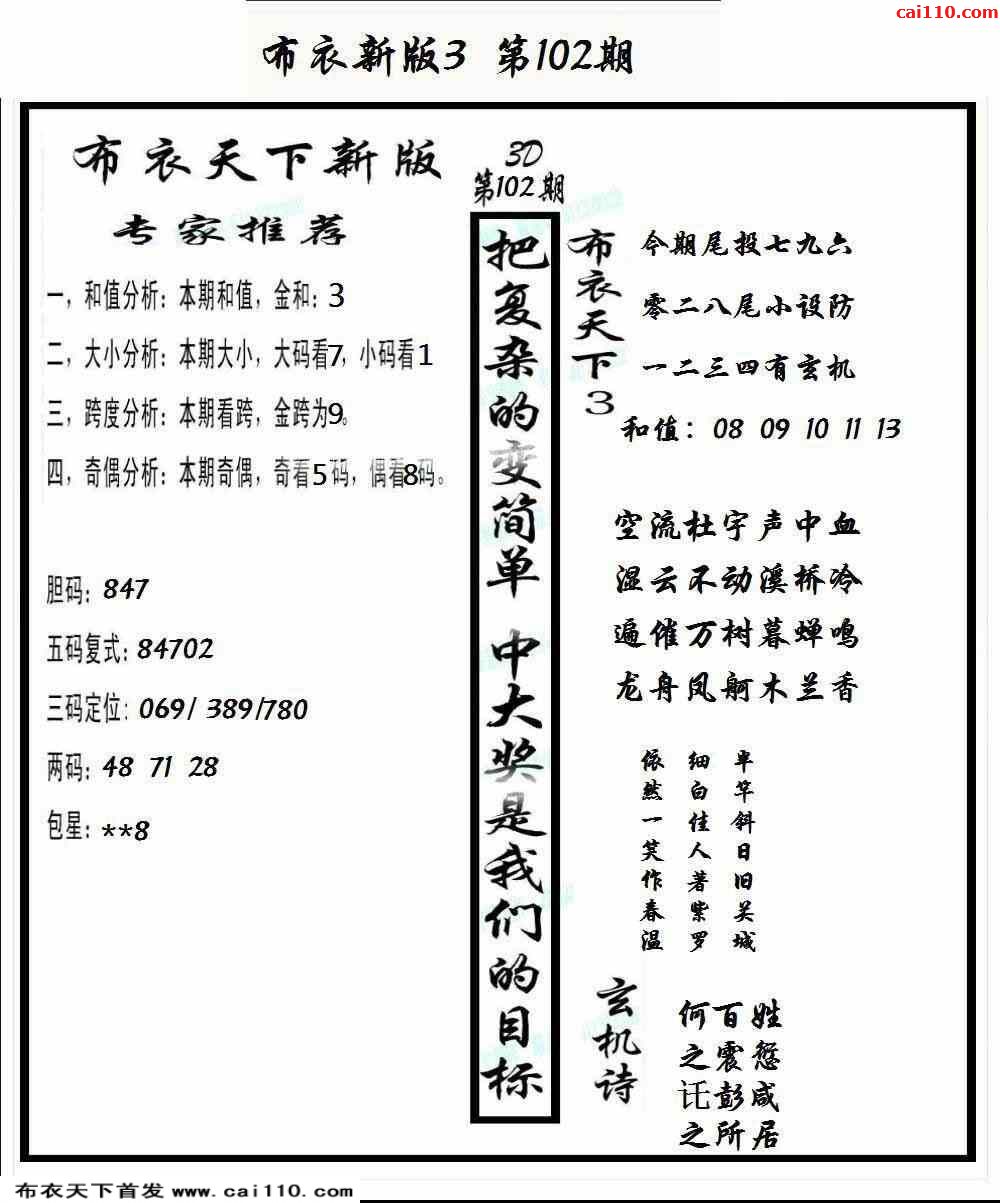 cai110.com
布衣新版3 第102期
布衣天下新版
专家推荐
一，和值分析：本期和值，金和：3
二，大小分析：本期大小，大码看7，小码看1
三，跨度分析：本期看跨，金跨为9。
四，奇偶分析：本期奇偶，奇看5码，偶看8码。
胆码：847
五码复式：84702
三码定位：069/ 389/780
两码：48 71 28
包星：**8
3D
第102期
把复杂的变简单 中大奖是我们的目标
布衣天下3
今期尾投七九六
零二八尾小设防
一二三四有玄机
和值：08 09 10 11 13
空流杜宇声中血
湿云不动溪桥冷
遍催万树暮蝉鸣
龙舟凤舸木兰香
半竿斜日旧关城
细白佳人著紫罗
依然一笑作春温
玄机诗
何百姓
之震愆
讬彭咸
之所居
布衣天下首发 www.cai110.com